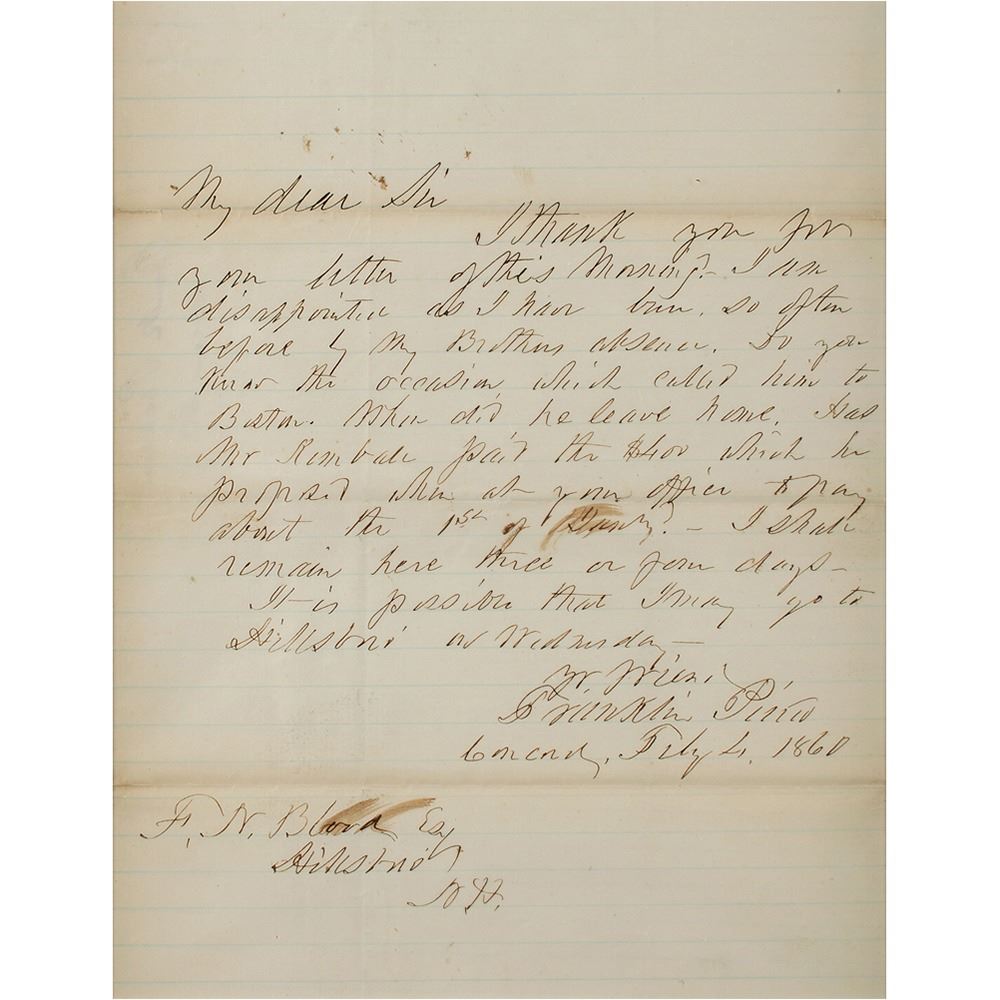 My dear Sir
I thank you for
your letter of this Morning - I am
disappointed as I have been, so often
before by my Brothers absence. Do you
know the occasion which called him to
Boston. When did he leave home. Has
Mr Kimball paid the $400 which he
proposed when at your office to pay
about the 1st of Jany? - I shall
remain here three or four days -
It is possible that I may go to
Hillsboro' on Wednesday -
Yr Friend
Franklin Pierce
Concord, Feby 4, 1860
F. N. Blood Esq
Hillsboro'
N.H.